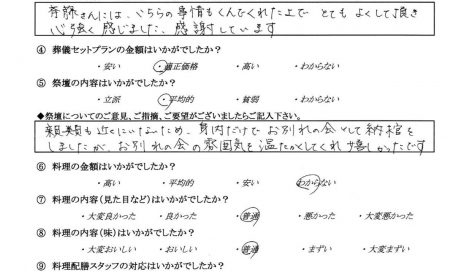 斉藤さんには、こちらの事情もくんでくれた上で とても よくして頂き
心強く感じました。感謝しています
④ 葬儀セットプランの金額はいかがでしたか?
・安い ・適正価格 ・高い ・わからない
⑤ 祭壇の内容はいかがでしたか?
・立派 ・平均的 ・貧弱 ・わからない
◆祭壇についてのご意見、ご指摘、ご要望がございましたらご記入下さい。
親類も近くにいないため、身内だけで お別れの会として納棺を
しましたが、お別れの会の雰囲気を温たかくしてくれ嬉しかったです
⑥ 料理の金額はいかがでしたか?
・高い ・平均的 ・安い ・わからない
⑦ 料理の内容(見た目など)はいかがでしたか?
・大変良かった ・良かった ・普通 ・悪かった ・大変悪かった
⑧ 料理の内容(味)はいかがでしたか?
・大変おいしい ・おいしい ・普通 ・まずい ・大変まずい
⑨ 料理配膳スタッフの対応はいかがでしたか?